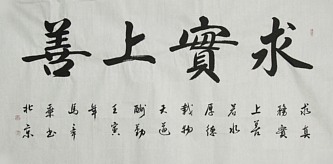 求實上善
求真
務實
上善
若水
厚德
載物
天道
酬勤
壬寅
年
北京